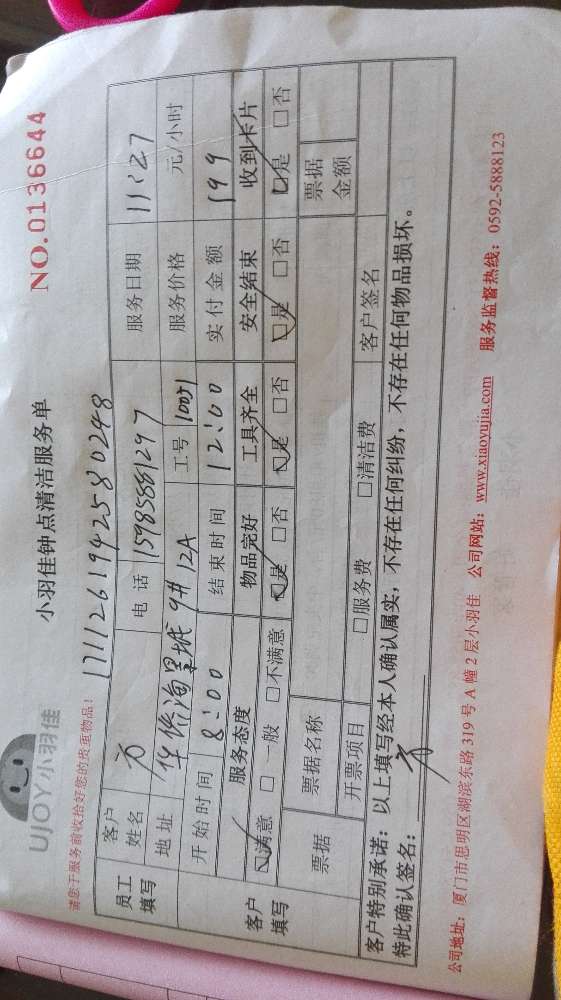 UJOY小羽佳
小羽佳钟点清洁服务单
NO.0136644
请您于服务前收拾好您的贵重物品！
1711261942580248
员工填写 客户姓名 方 电话 15985881297 服务日期 11:27
地址 华侨海景城 9# 12A 工号 10071 服务价格 元/小时
开始时间 8:00 结束时间 12:00 实付金额 199
客户填写 服务态度 物品完好 工具齐全 安全结束 收到卡片
☑满意 □一般 □不满意 ☑是 □否 ☑是 □否 ☑是 □否 ☑是 □否
票据 票据名称 票据金额
开票项目 □服务费 □清洁费 客户签名
客户特别承诺：以上填写经本人确认属实，不存在任何纠纷，不存在任何物品损坏。
特此确认签名： 方
公司地址：厦门市思明区湖滨东路 319 号 A 幢 2 层小羽佳 公司网站：www.xiaoyujia.com 服务监督热线：0592-5888123